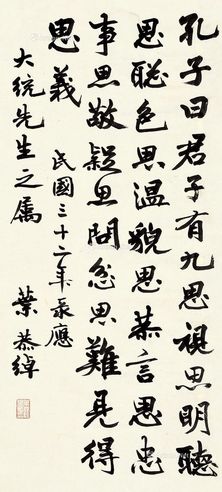 孔子曰君子有九思視思明聽
思聡色思温貌思恭言思忠
事思敬疑思問忿思難見得
思義　民國三十二年泉應
大統先生之属　葉恭綽